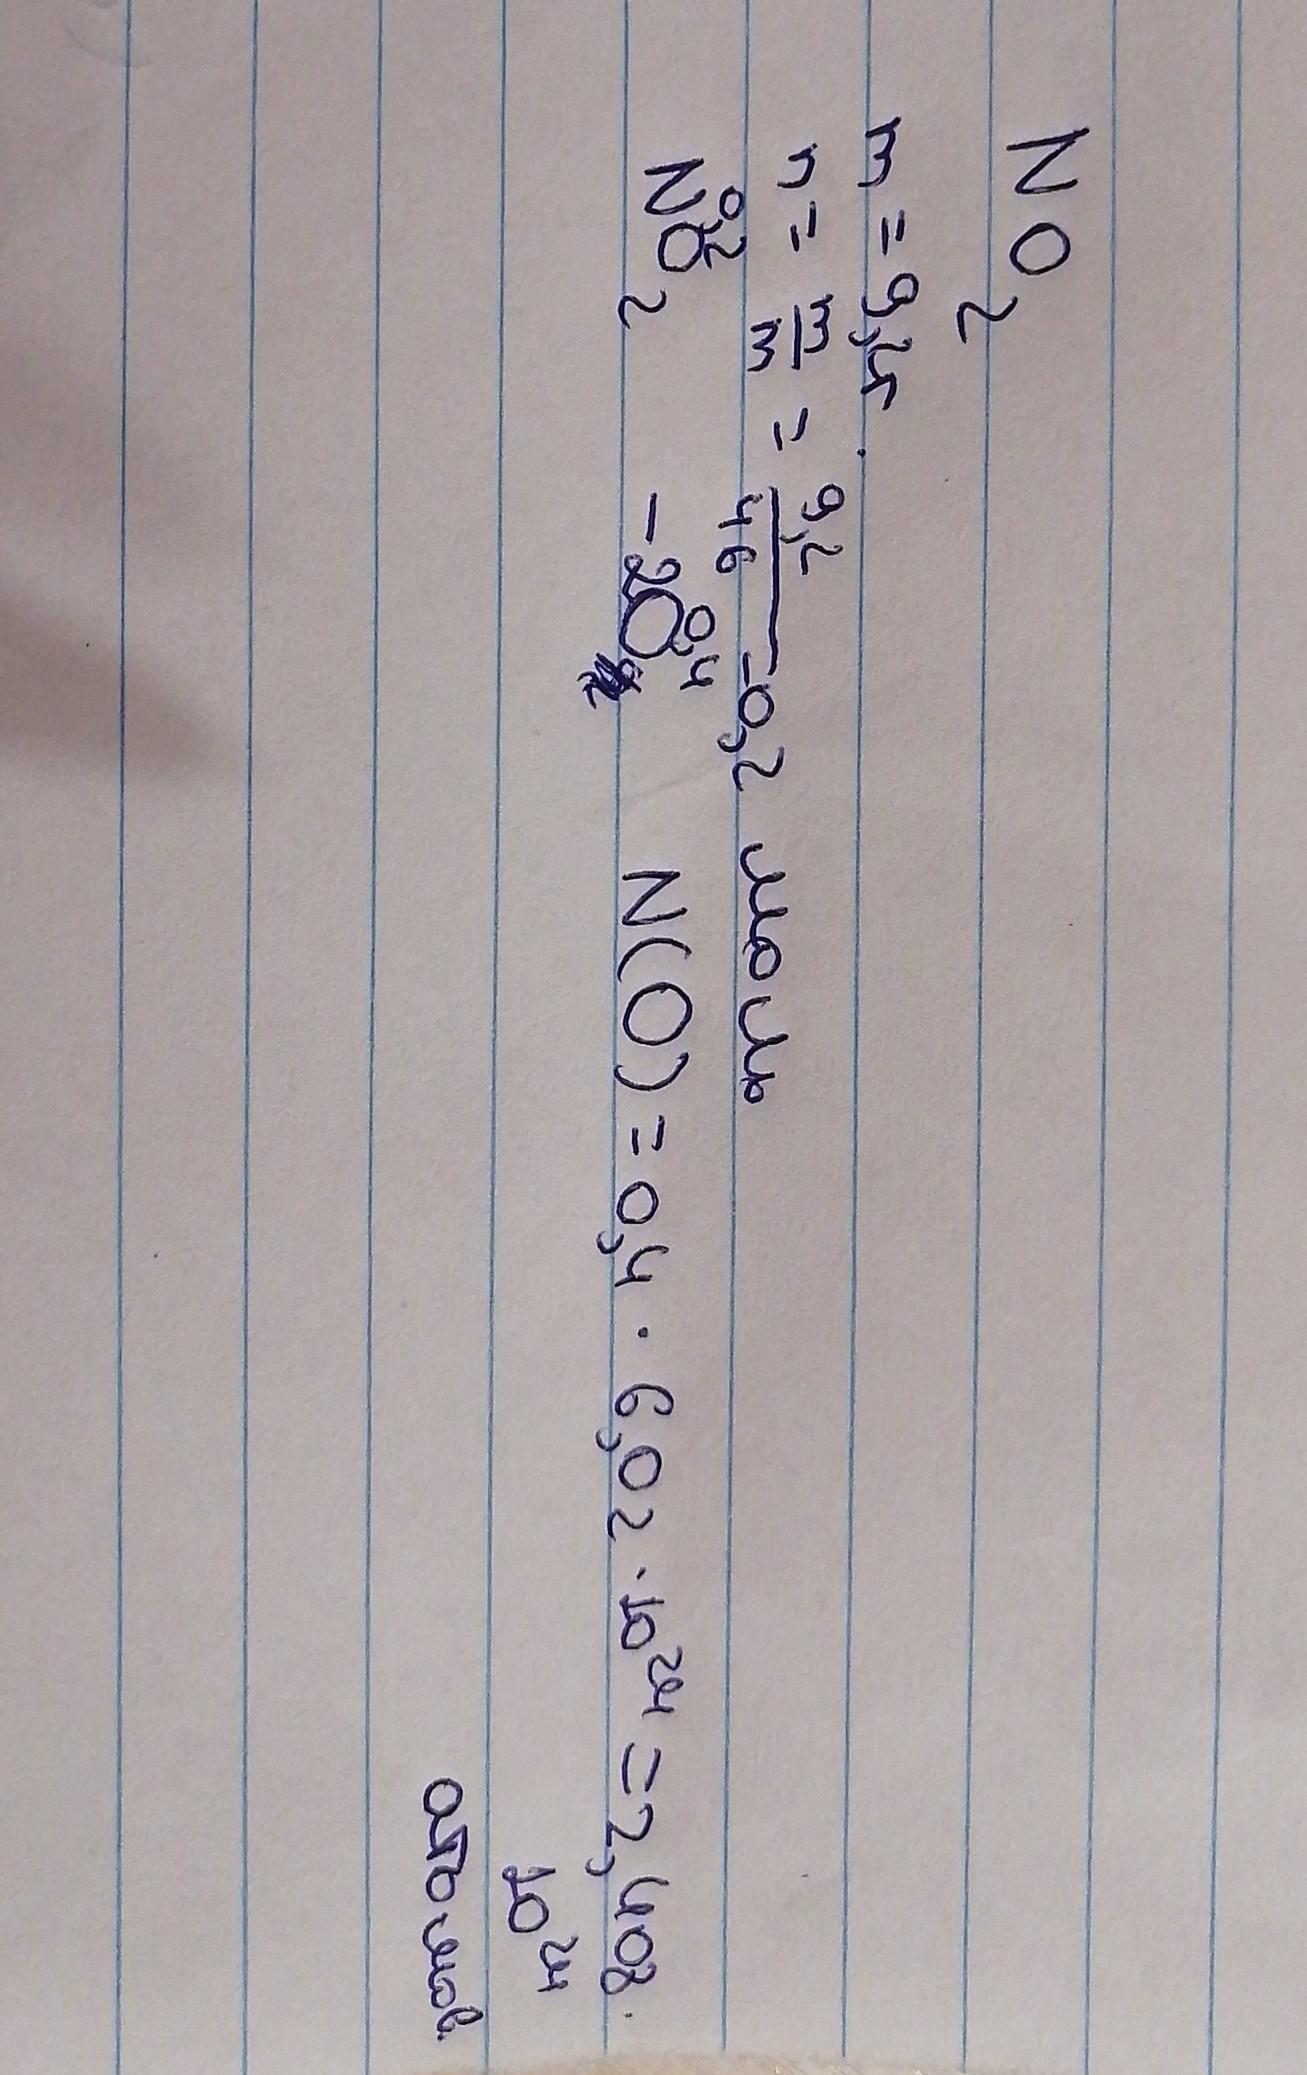 NO₂
m = 9,2г.
n = m/M = 9,2/46 = 0,2 моль
NO₂ ⁰,² – 2O ⁰,⁴ N(O) = 0,4 · 6,02 · 10²⁴ = 2,408 ·
10²⁴
атомов.